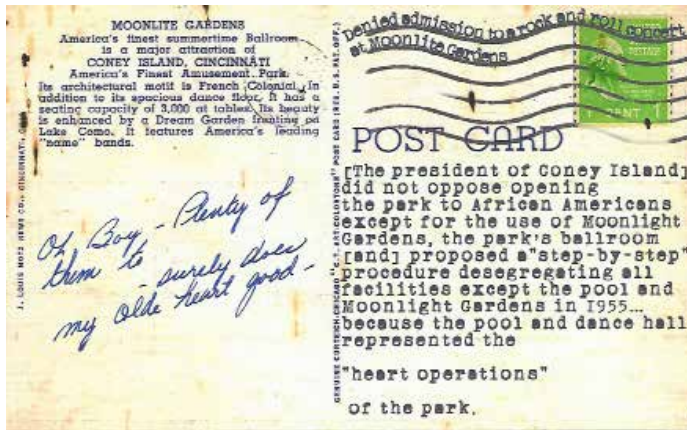 MOONLITE GARDENS
America's finest summertime Ballroom
is a major attraction of
CONEY ISLAND, CINCINNATI
America's Finest Amusement Park.
Its architectural motif is French Colonial. In
addition to its spacious dance floor, it has a
seating capacity of 3,000 at tables. Its beauty
is enhanced by a Dream Garden fronting on
Lake Como. It features America's leading
"name" bands.
J. LOUIS MOTZ NEWS CO., CINCINNATI,
Oh Boy - Plenty of
them to
- surely does
my olde heart good -
GENUINE CURTEICH-CHICAGO "C.T. ART-COLORTONE" POST CARD (REG. U.S. PAT. OFF.)
Denied admission to a rock and roll concert
at Moonlite Gardens
POSTAGE
1 CENT 1
POST CARD
[The president of Coney Island]
did not oppose opening
the park to African Americans
except for the use of Moonlight
Gardens, the park's ballroom
[and] proposed a "step-by-step"
procedure desegregating all
facilities except the pool and
Moonlight Gardens in 1955...
because the pool and dance hall
represented the
"heart operations"
of the park.